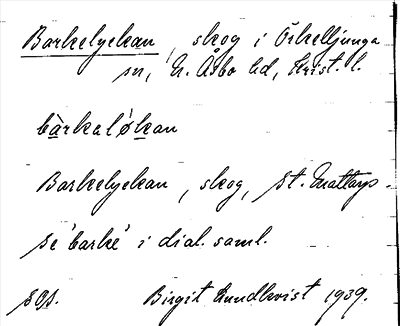 Barkelyckan, skog i Örkelljunga
sn, N. Åsbo hd, Krist. l.
bàrkalø̀kan
Barkelyckan, skog, St.
se 'barke' i dial. saml.
Birgit Lundkvist 1939.